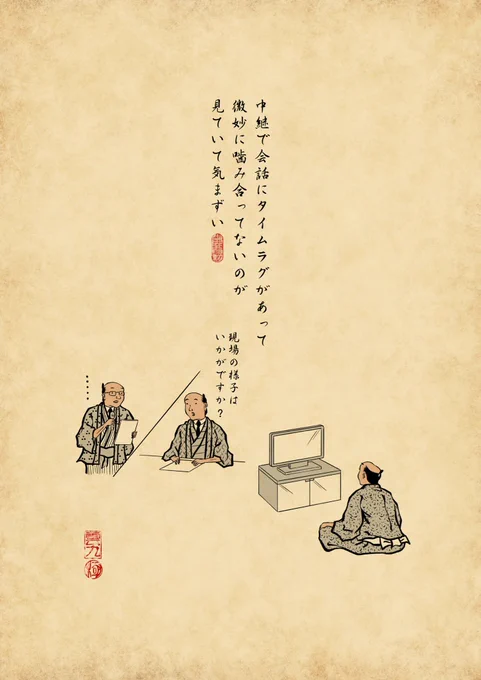 中継で会話にタイムラグがあって
微妙に噛み合ってないのが
見ていて気まずい
現場の様子は
いかがですか？
……